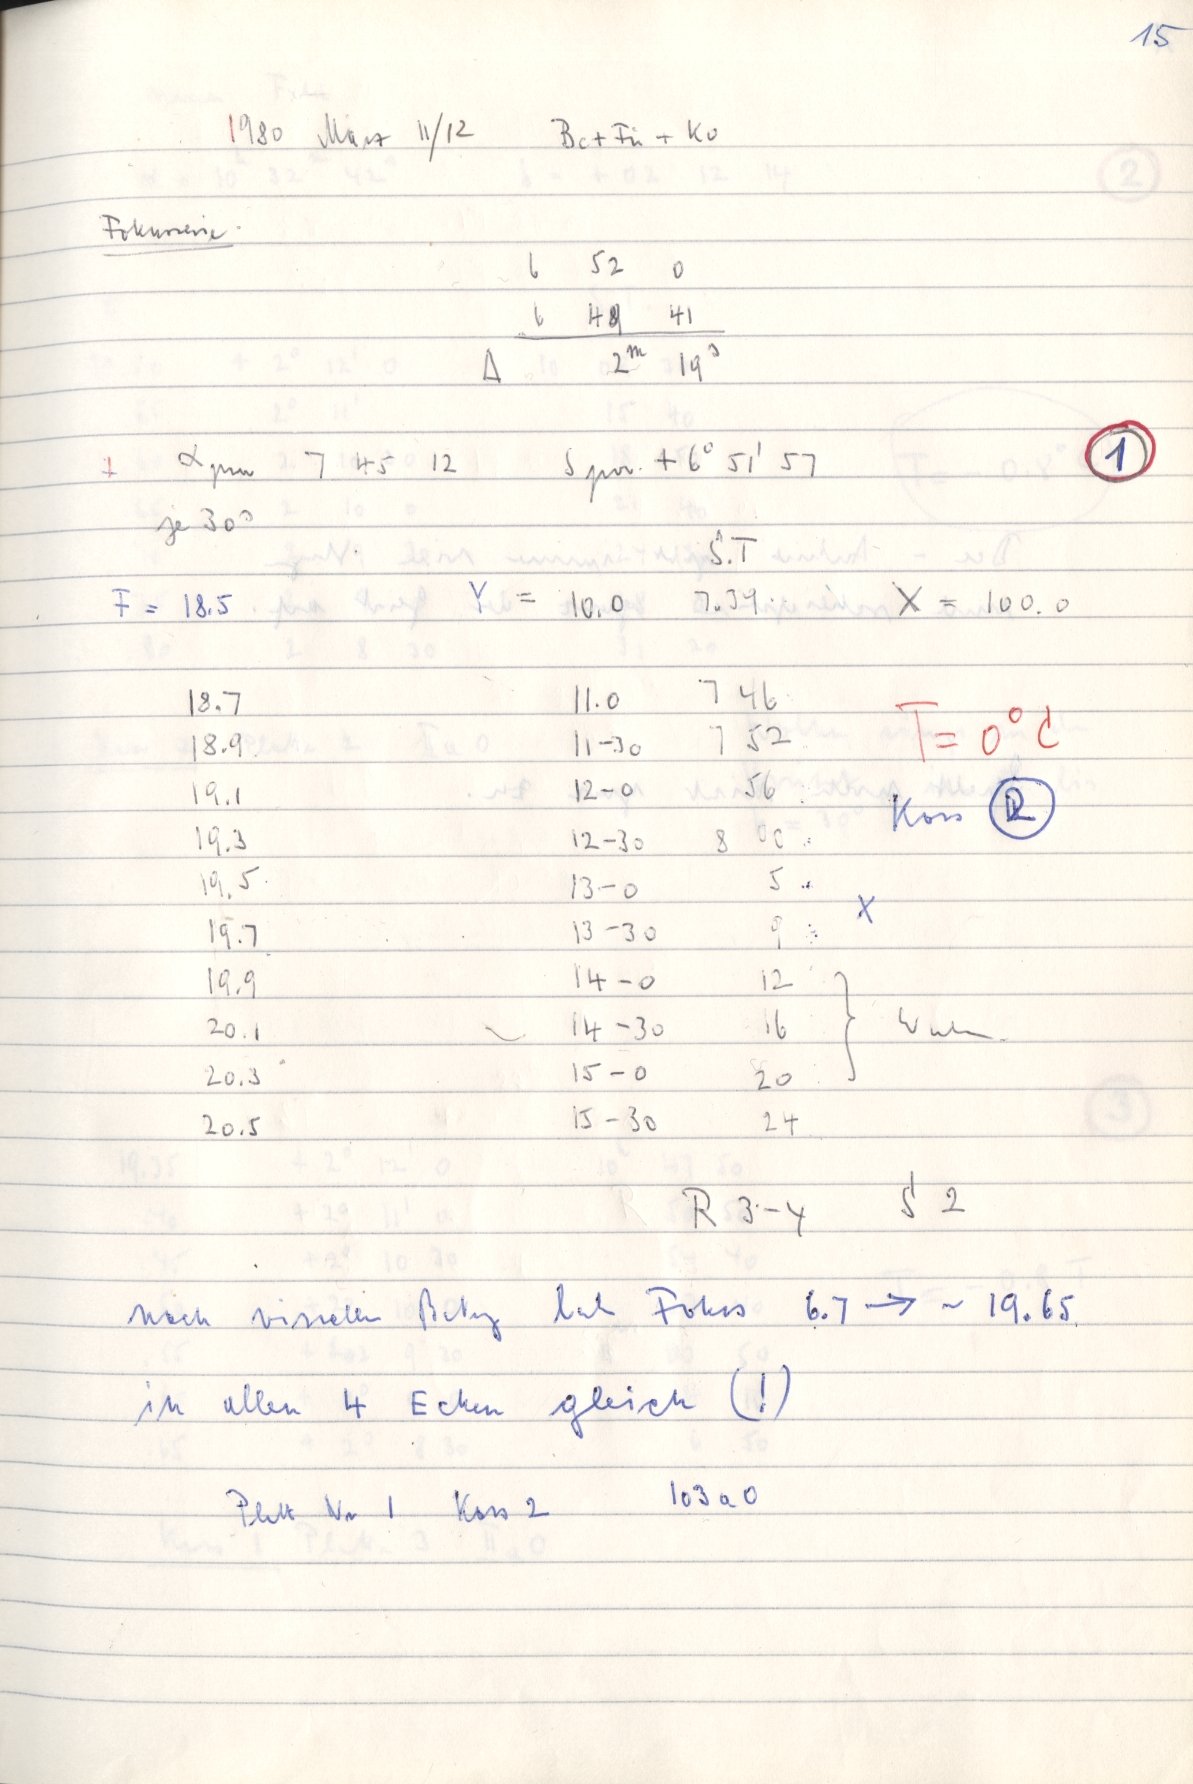 15
1980 März 11/12 Bc + Fü + Ko
Fokusserie
6 52 0
6 49 41
Δ 2m 19s
1 α prov 7 45 12 δ prov. + 6° 51' 57 1
je 30s
S.T
F = 18.5 Y = 10.0 7.39 X = 100.0
18.7 11.0 7 46
18.9 11-30 7 52 T = 0° C
19.1 12-0 56
19.3 12-30 8 00 Kass 2
19.5 13-0 5
19.7 13-30 9 X
19.9 14-0 12
20.1 14-30 16
20.3 15-0 20
20.5 15-30 24
R 3-4 S 2
nach visuellen Fokus 6.7 → ~ 19.65
in allen 4 Ecken gleich (!)
Platte Nr 1 Kass 2 103a0